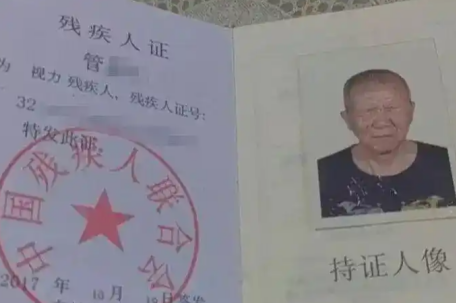 残疾人证
管
为 视力 残疾人，残疾人证号：
32
特发此证
中国残疾人联合会
2017 年 10 月 18日签发
持证人像